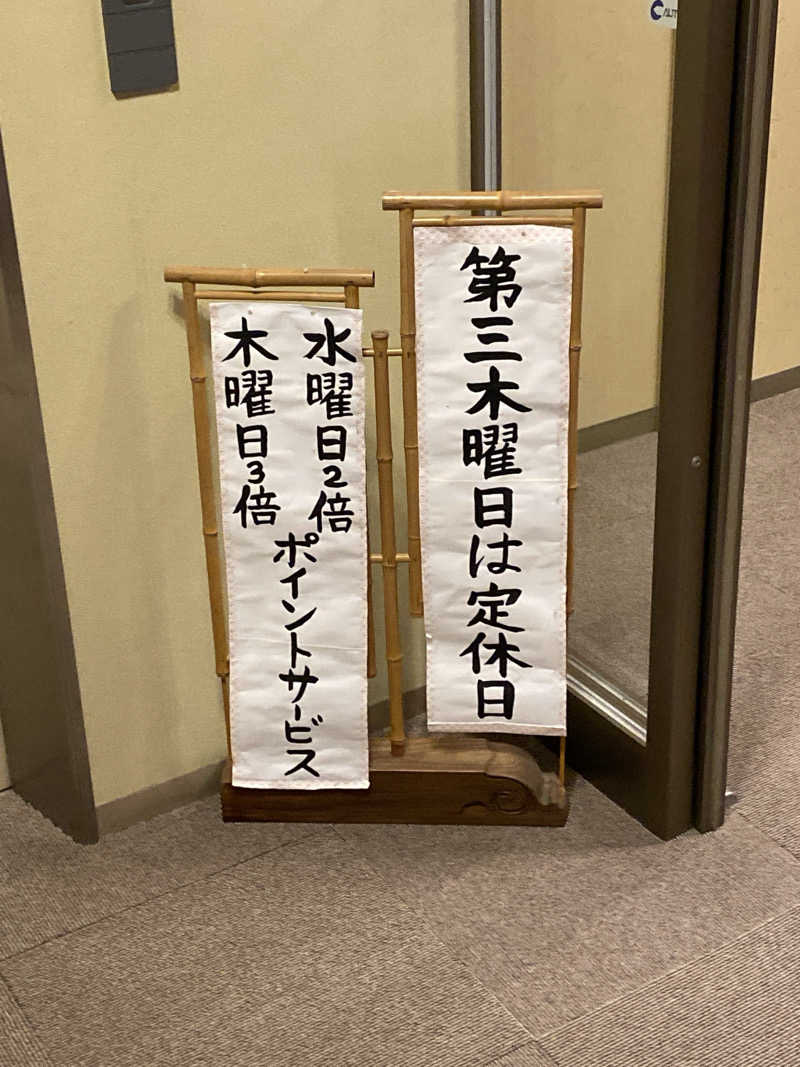 第三木曜日は定休日
水曜日2倍
木曜日3倍
ポイントサービス